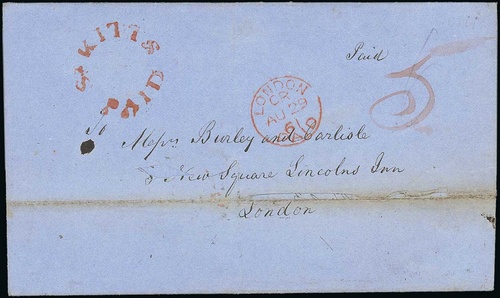 St KITTS
PAID
Paid
5
LONDON
AU 29
61
PAID
To
Messrs Burley and Carlisle
8 New Square Lincolns Inn
London